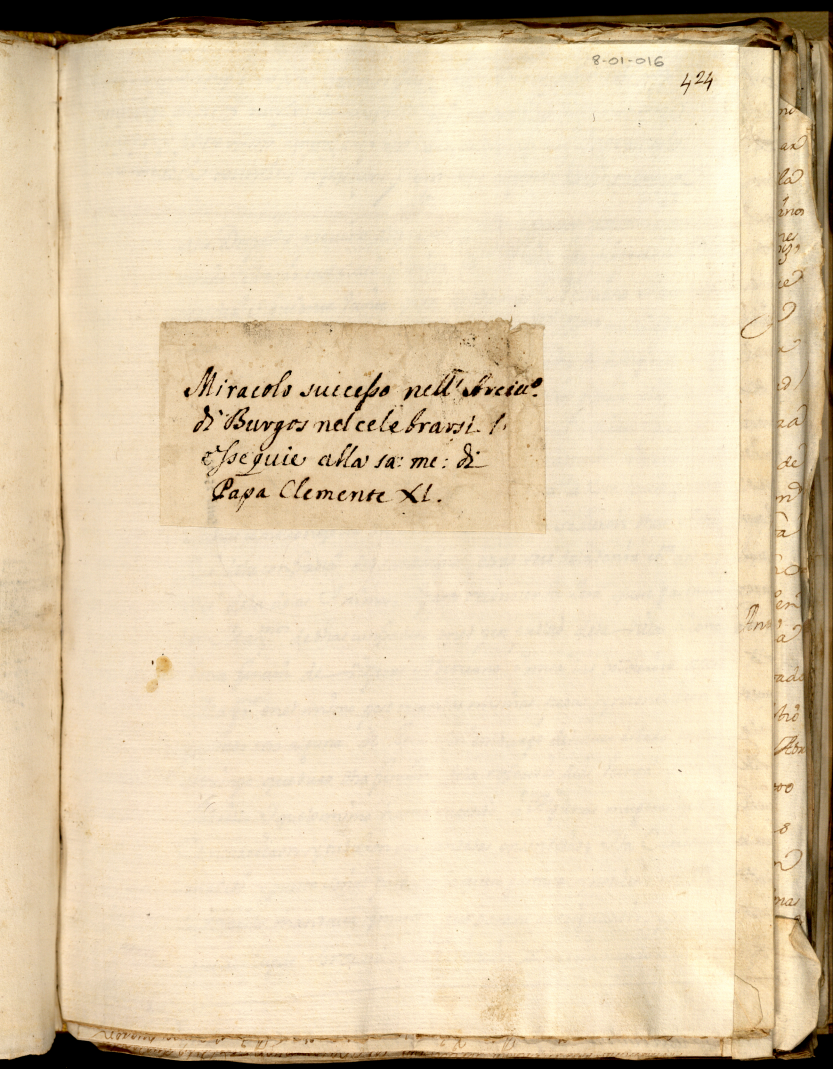 8-01-016
424
Miracolo successo nell' Arciu.º
di Burgos nel celebrarsi l'
essequie alla sa: me: di
Papa Clemente XI.